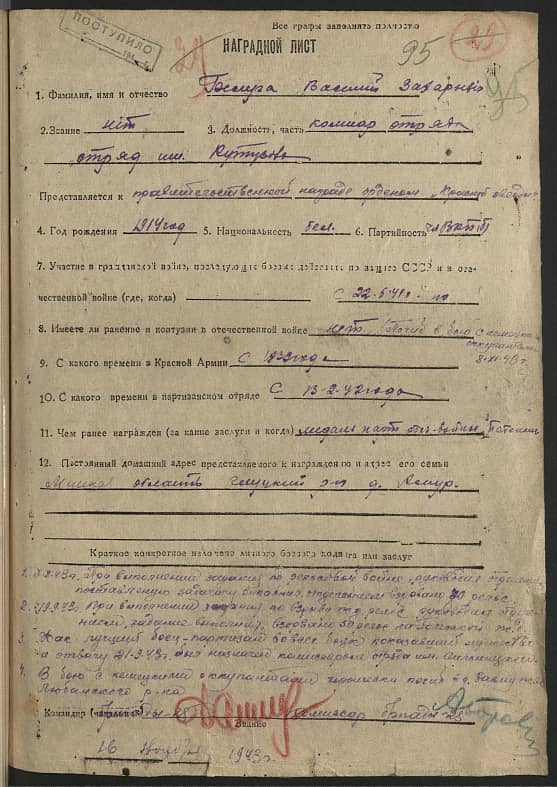 Все графы заполнять полностью
ПОСТУПИЛО
29
95
29
95
НАГРАДНОЙ ЛИСТ
1. Фамилия, имя и отчество Василий Захарович
2. Звание нет 3. Должность, часть комиссар отряда
отряд им. Кутузова
Представляется к правительственной награде орденом „Красной
4. Год рождения 1914 год 5. Национальность бел. 6. Партийность чл ВКП/б/
7. Участие в гражданской войне, последующие боевые действия по защите СССР и в оте-
чественной войне (где, когда) С 22.6.41г. по
8. Имеете ли ранение и контузии в отечественной войне нет. Погиб в бою с немецкими
оккупантами
8-XI-43г.
9. С какого времени в Красной Армии С 1939 года
10. С какого времени в партизанском отряде С 13-2-42 года
11. Чем ранее награжден (за какие заслуги и когда) медаль парт. отч. войны, II степени
12. Постоянный домашний адрес представляемого к награждению и адрес его семьи
Минская область р-он д.
Краткое конкретное изложение личного боевого подвига или заслуг
1. При выполнении задания по рельсовой войне,
поставленную задачу выполнил взорвано 70 рельс.
2. При выполнении задания по взрыву ж.д. рельс
задание выполнил, взорвано 50 рельс на
3. Как лучший боец-партизан во все бои показавший мужество
и отвагу 21-9-43г. был назначен комиссаром отряда им.
4. В бою с немецкими оккупантами героически погиб д.
Любанского р-на
Командир (начальник) бригады 28 Комиссар бригады 28
Звание
16 ноября 1943г.